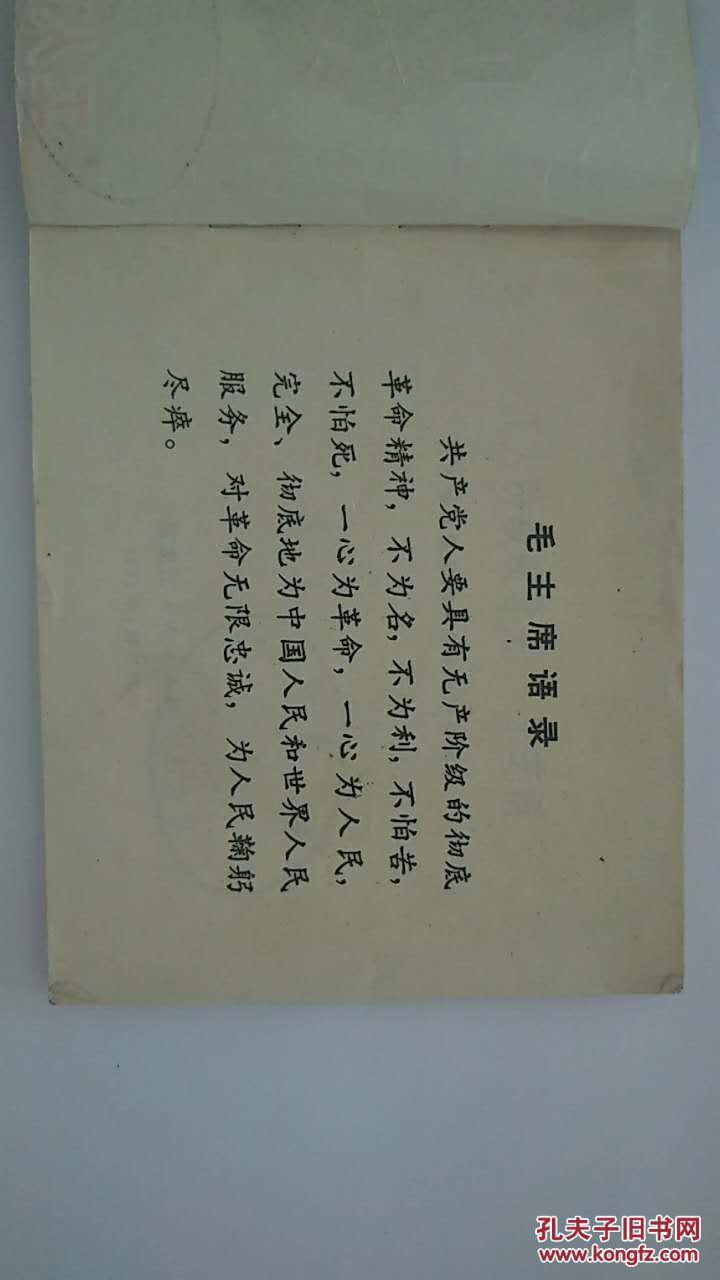 毛主席语录
共产党人要具有无产阶级的彻底
革命精神，不为名，不为利，不怕苦，
不怕死，一心为革命，一心为人民，
完全、彻底地为中国人民和世界人民
服务，对革命无限忠诚，为人民鞠躬
尽瘁。
孔夫子旧书网
www.kongfz.com